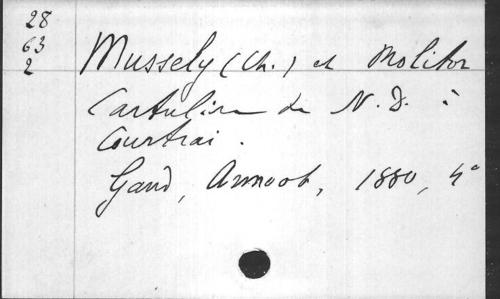 28
63
2
Mussely (Ch.) et Molitor
Cartulaire de N. D. à
Courtrai.
Gand, Annoot, 1880, 4°